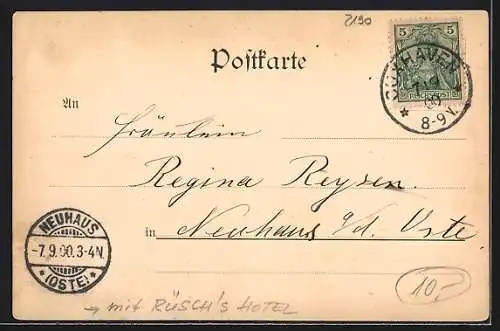 2190
5 5
Postkarte
CUXHAVEN
7/9
00
8-9V.
An
Fräulein
Regina Reysen.
in Neuhaus a/d. Oste
NEUHAUS
-7.9.00.3-4N.
(OSTE)
→ mit RÜSCH'S HOTEL
10.-